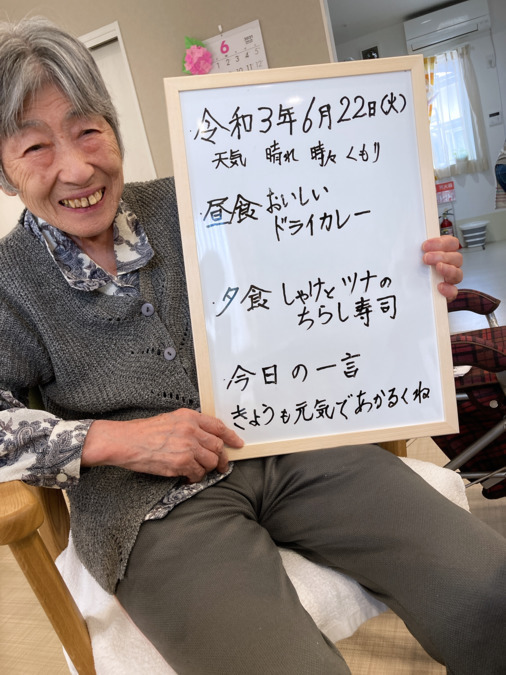 6
令和3年6月22日(火)
天気 晴れ 時々 くもり
昼食 おいしい
ドライカレー
夕食 しゃけとツナの
ちらし寿司
今日の一言
きょうも元気であかるくね